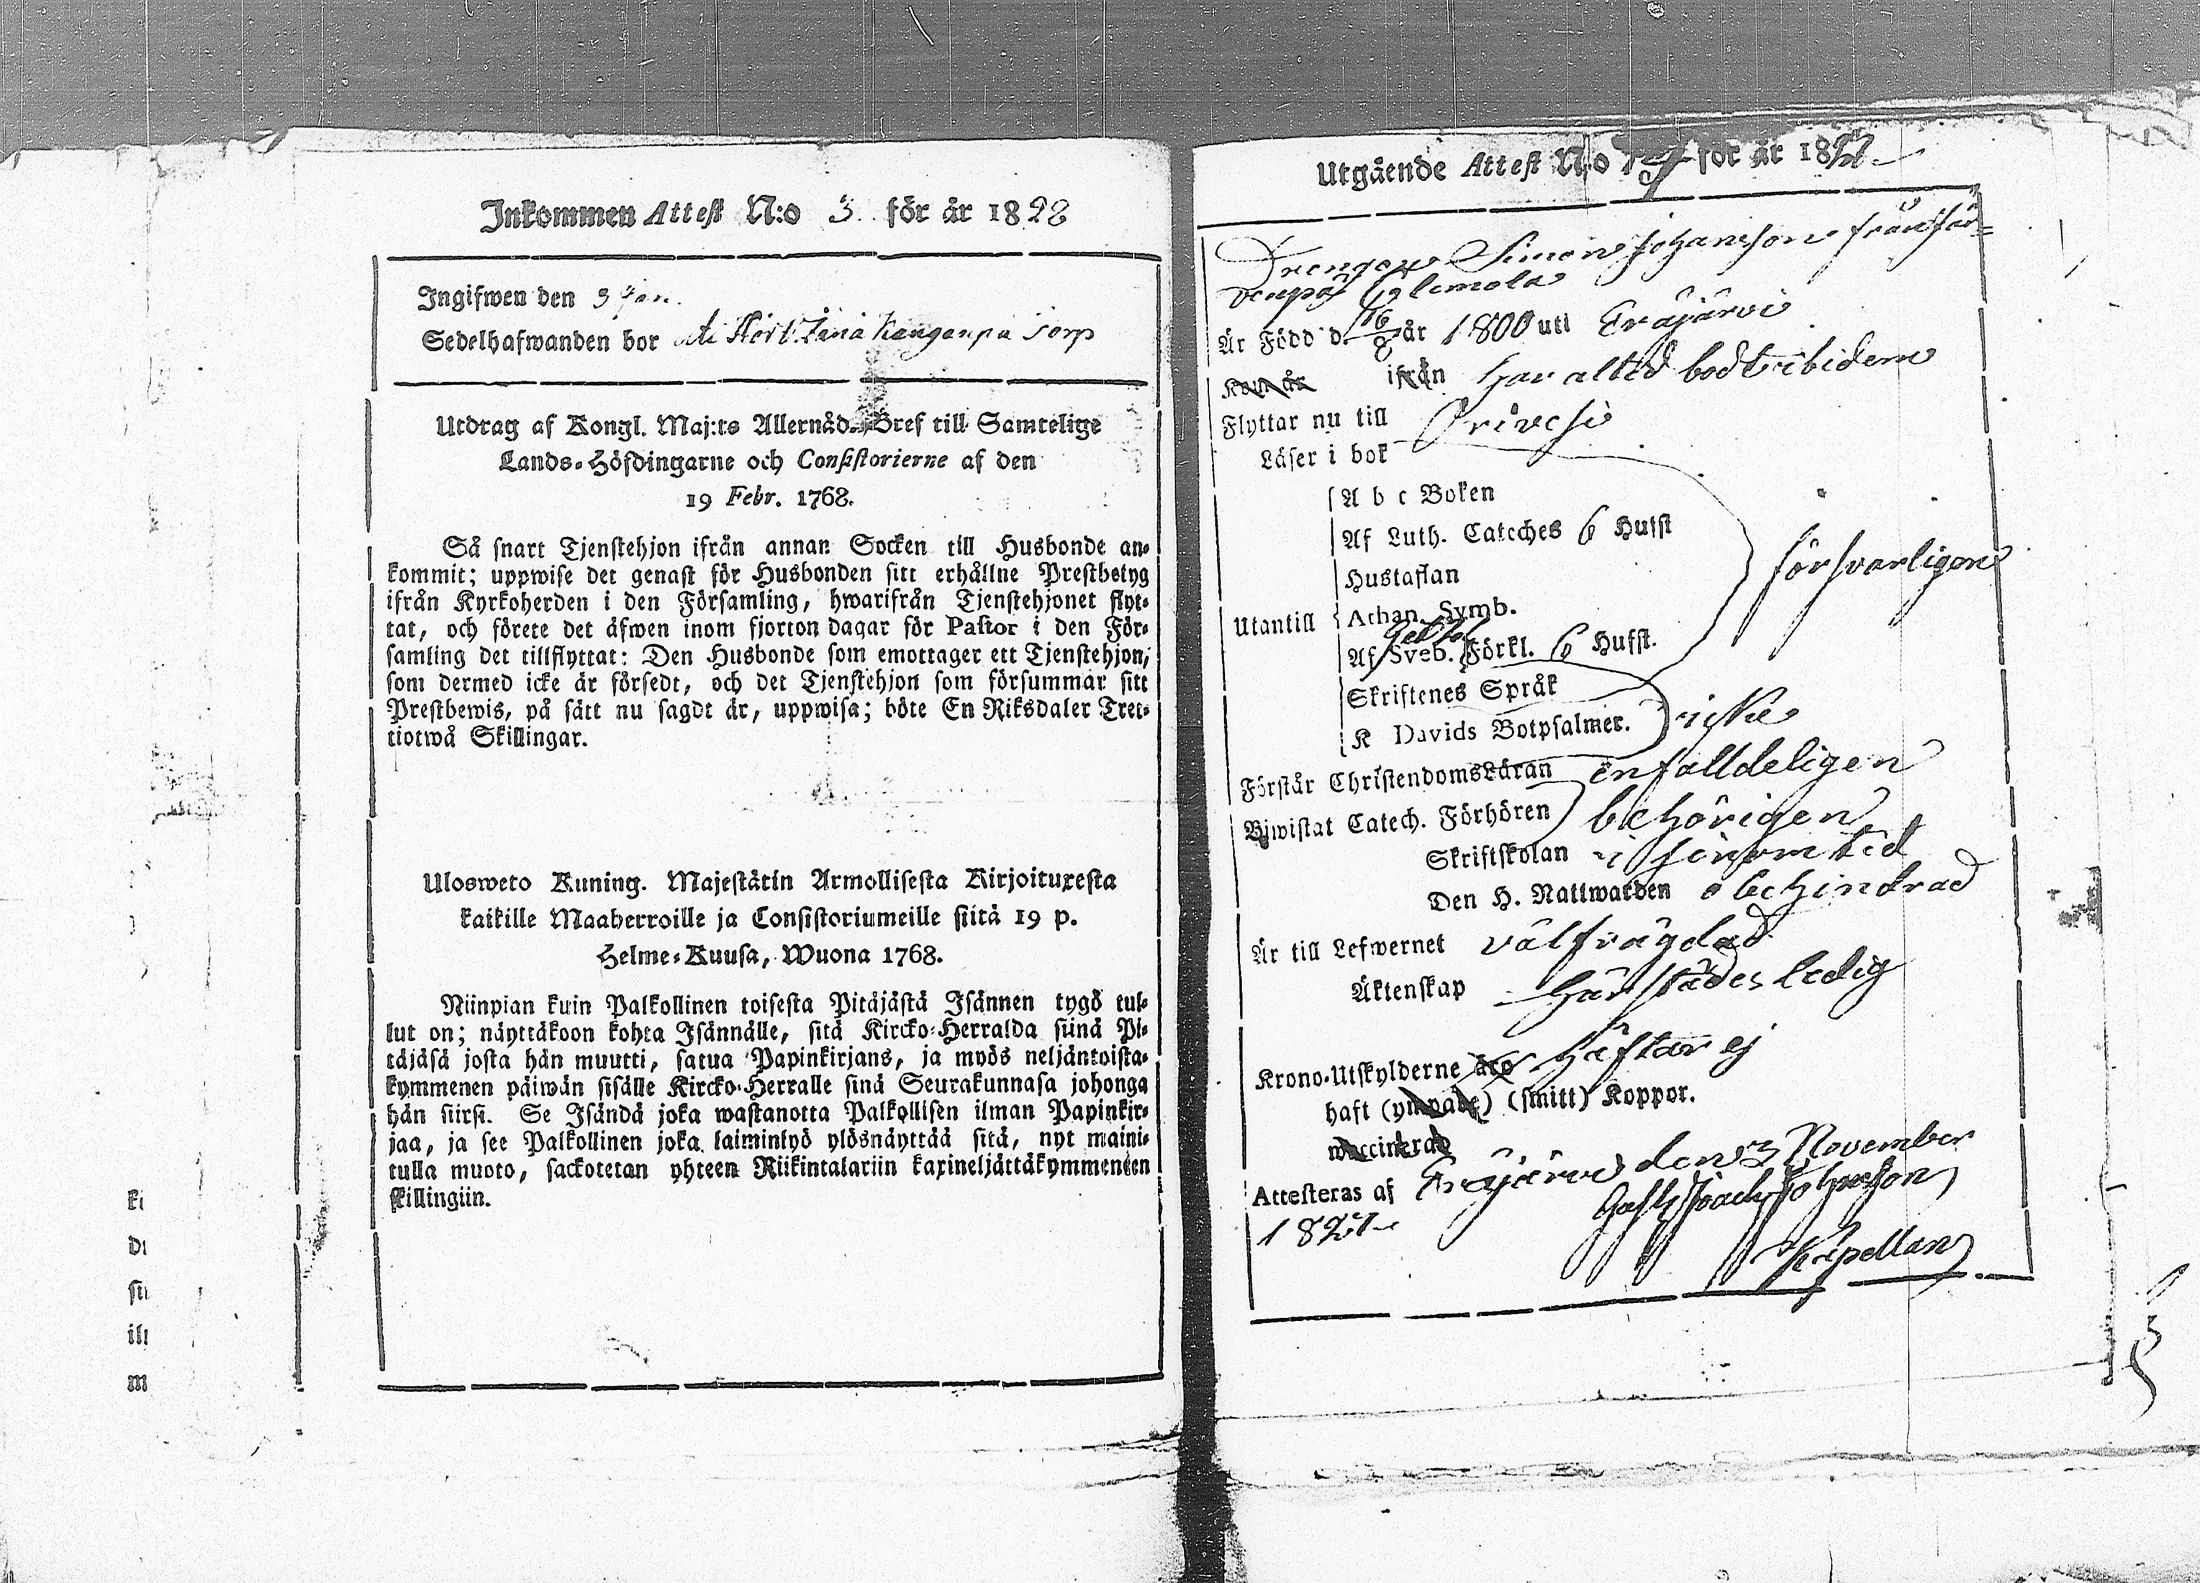 Inkommen Attest N:o 3. för år 1828
Ingifwen den 3 Jan.
Sedelhafwanden bor Torp
Utdrag af Kongl. Maj:ts Allernåd. Bref till Samtelige
Lands-Höfdingarne och Consistorierne af den
19 Febr. 1768.
Så snart Tjenstehjon ifrån annan Socken till Husbonde an-
kommit; uppwise det genast för Husbonden sitt erhållne Prestbetyg
ifrån Kyrkoherden i den Församling, hwarifrån Tjenstehjonet flyt-
tat, och förete det äfwen inom fjorton dagar för Pastor i den För-
samling det tillflyttat: Den Husbonde som emottager ett Tjenstehjon,
som dermed icke är försedt, och det Tjenstehjon som försummar sitt
Prestbewis, på sätt nu sagdt är, uppwisa; böte En Riksdaler Tret-
tiotwå Skillingar.
Ulosweto Kuning. Majestätin Armollisesta Kirjoituxesta
kaikille Maaherroille ja Consistoriumeille siitä 19 p.
Helme-Kuusa, Wuona 1768.
Niinpian kuin Palkollinen toisesta Pitäjästä Isännen tygö tul-
lut on; näyttäkoon kohta Isännälle, sitä Kircko-Herralda siinä Pi-
täjäsä josta hän muutti, satua Papinkirjans, ja myös neljäntoista-
kymmenen päiwän sisälle Kircko-Herralle sinä Seurakunnasa johonga
hän siirsi. Se Isändä joka wastanotta Palkollisen ilman Papinkir-
jaa, ja see Palkollinen joka laiminlyö ylösnäyttää sitä, nyt maini-
tulla muoto, sackotetan yhteen Riikintalariin kaxineljättäkymmeneen
skillingiin.
ki
di
sii
ilt
m
Utgående Attest N:o för år 18
Drengen Simon Johansson från Jär-
venpää Ylimola
Är Född d. 16/8 år 1800 uti Eräjärvi
Kom år ifrån har altid bodt ibidem
Flyttar nu till Orivesi
Läser i bok
A b c Boken
Af Luth. Cateches 6 Hufst
Hustaflan
försvarligen
Utantill Athan. Symb.
Af Sveb. Förkl. 6 Hufst.
Skriftenes Språk
K Davids Botpsalmer. icke
Förstår ChristendomsLäran enfalldeligen
Bjwistat Catech. Förhören behörigen
Skriftskolan i sinom tid
Den H. Nattwarden obehindrad
Är till Lefwernet välfrägdad
Äktenskap härstädes ledig
Krono-Utskylderne äro häftar ej
haft (ympade) (smitt) Koppor.
waccinerad
Attesteras af Eräjärvi den 3 November
1827
Kapellan